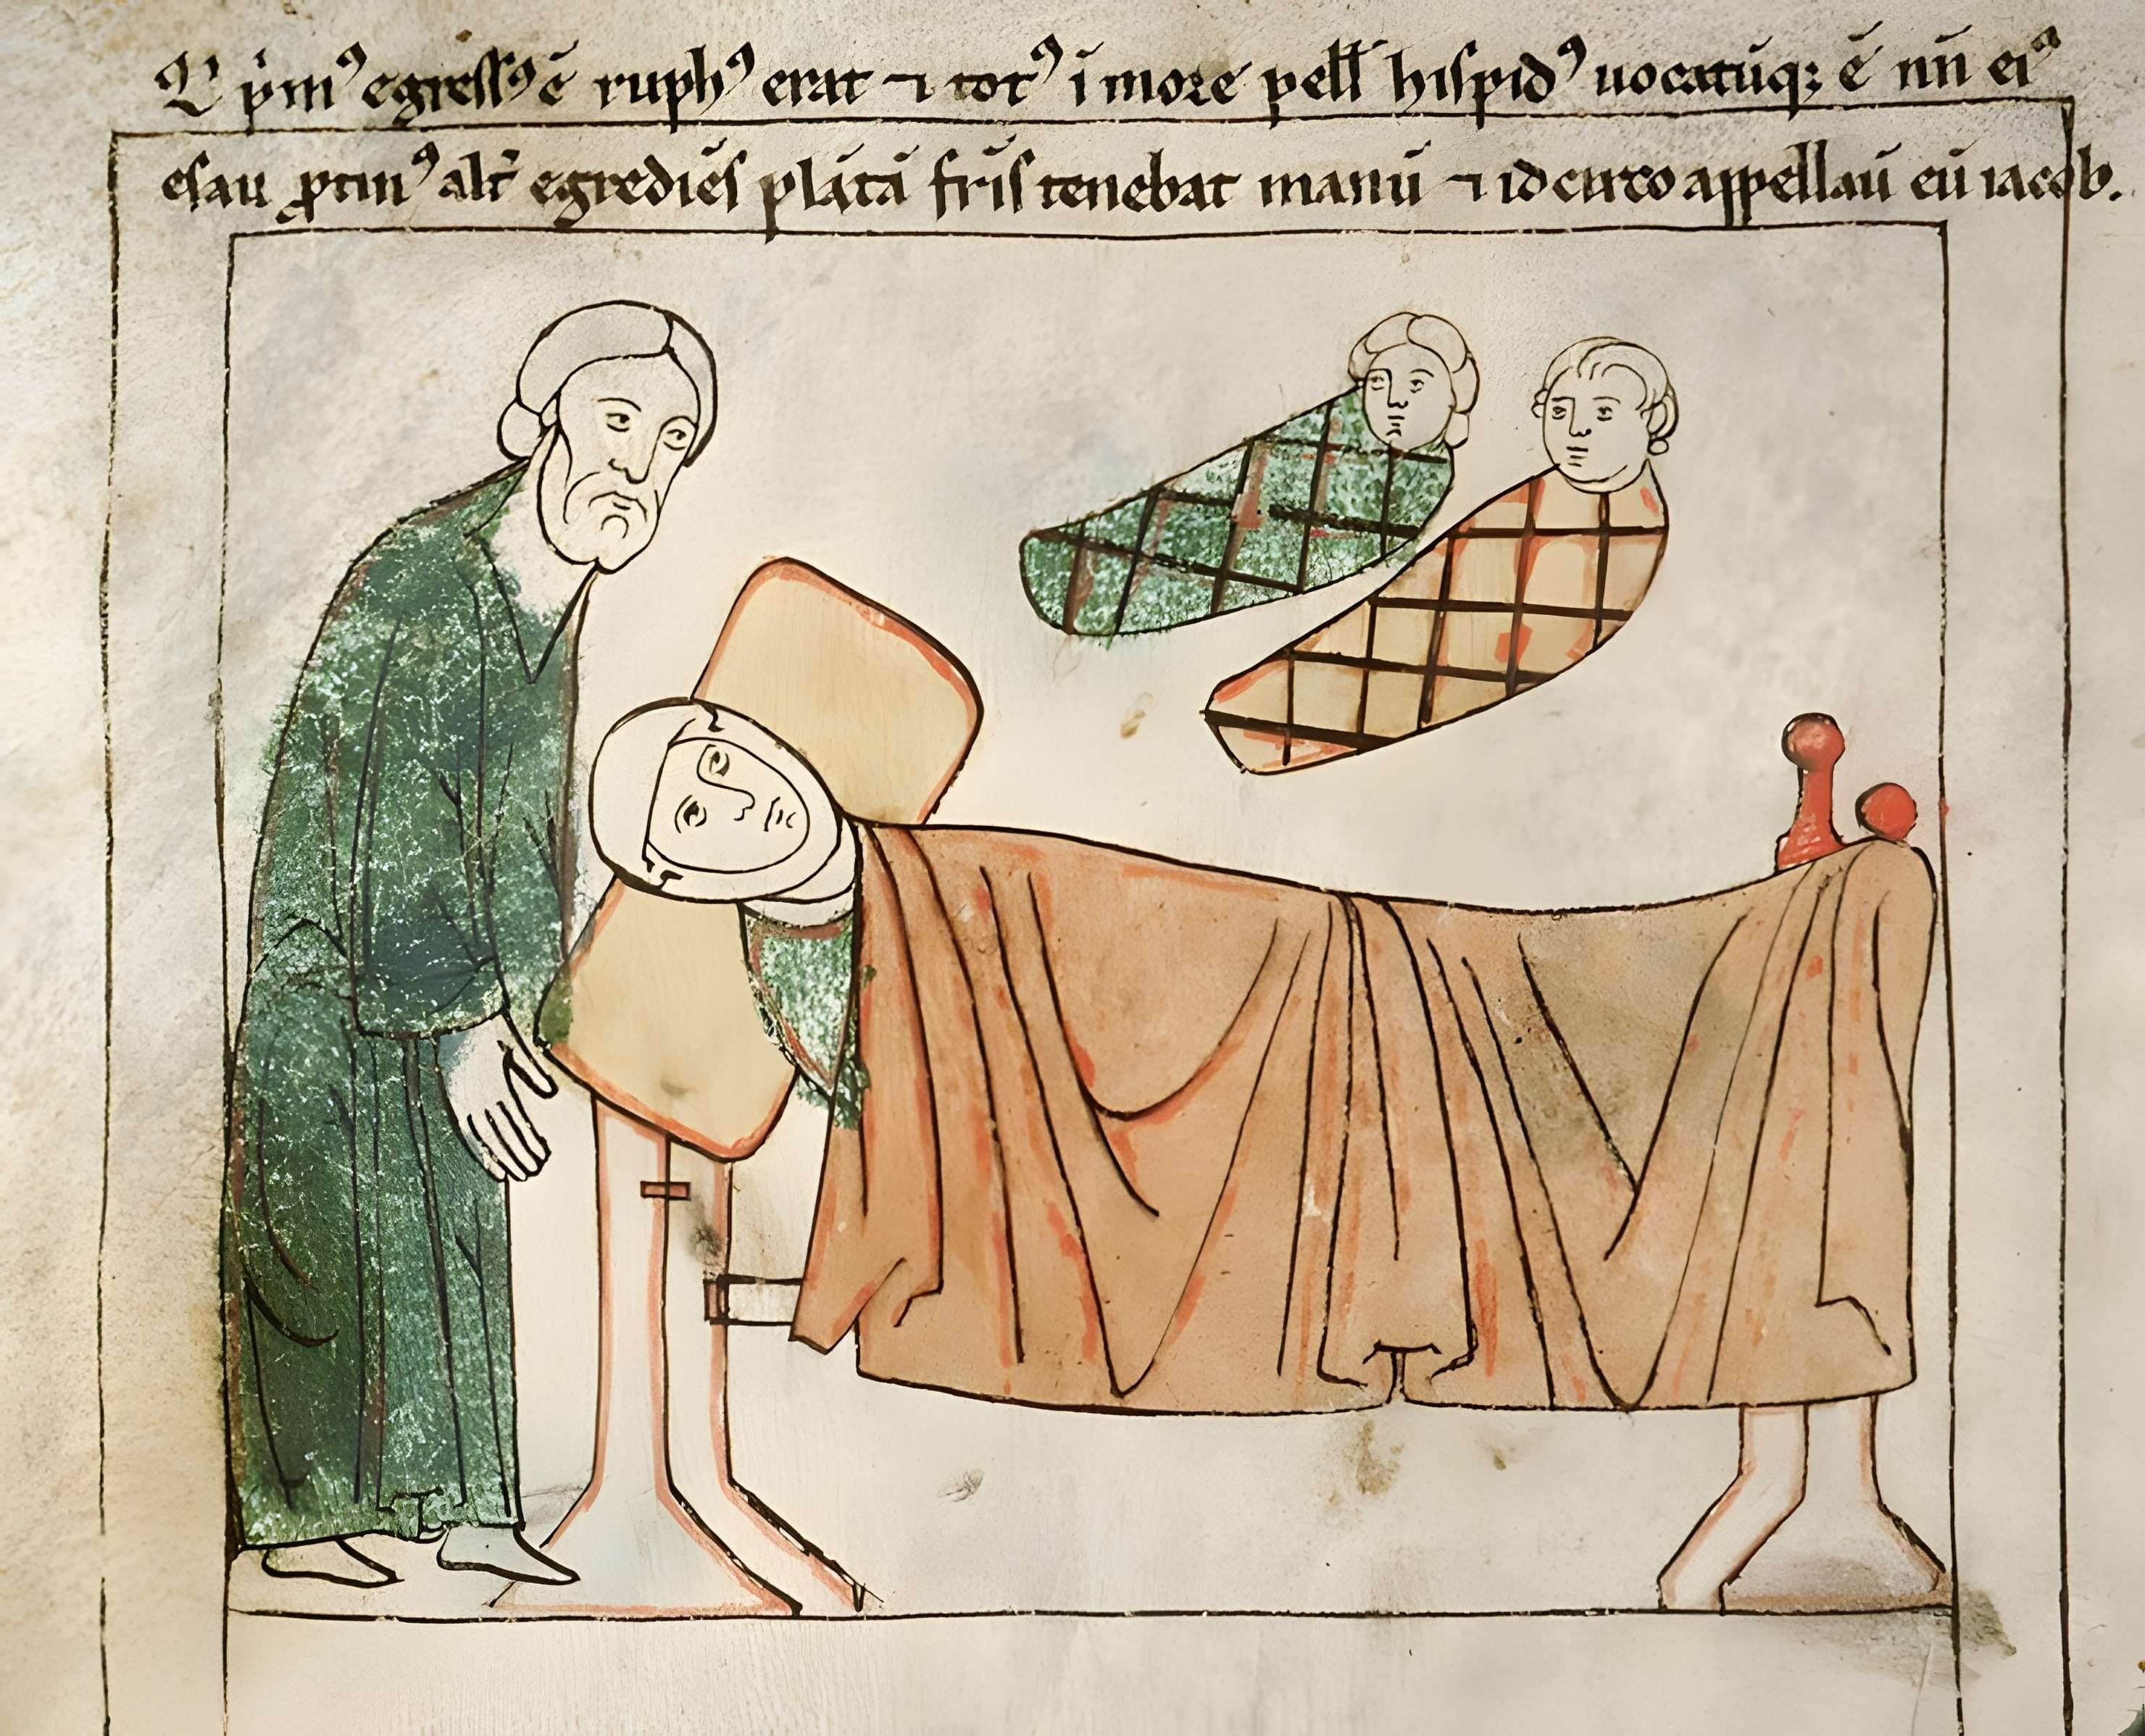 Q̇ p̓mꝰ egressꝰ ē ruphꝰ erat ⁊ totꝰ ī more pell̄ hispidꝰ uocatūqꝫ ē nn̄ eiꝰ
esau ꝓtinꝰ alt̓ egrediēs plātā fr̄is tenebat manū ⁊ idcirco appellaū eū iacob.